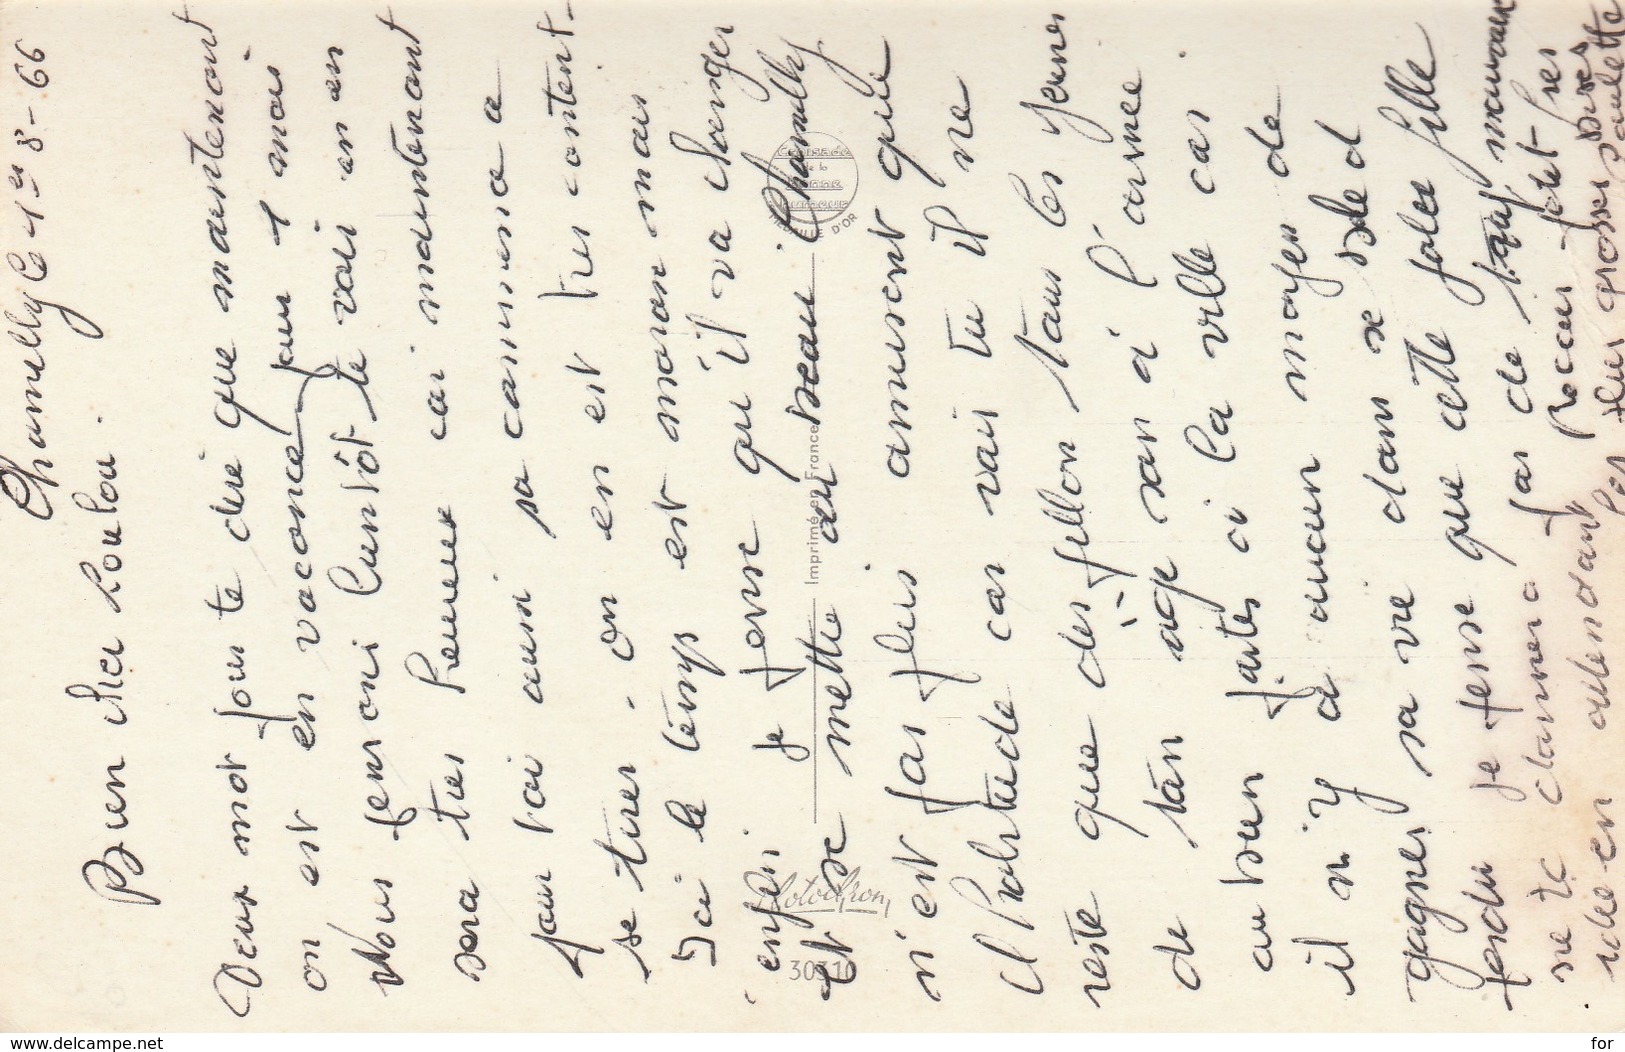 Chantilly le 1er 8-66
Bien cher Loulou.
Deux mot pour te dire que maintenant
on est en vacance pour 1 mois
Nous pensons bientôt te voir en en
sera tres heureux car maintenant
pour toi aussi sa commence a
se tirer. on en est tres content.
Ici le temps est moron mais
enfin je pense qu'il va changer
et se mettre au beau Chantilly
n'est pas plus amusent que
car vois tu il ne
reste que des fillon tous les jeunes
de ton age son à l'armee
ou bien partes a la ville car
il n'y a aucun moyen de
gagner sa vie dans se bled
je pense que cette jolie fille
ne te donnera pas de
idée en attendant
Les plus grosses bises
Paulette
Croisade de la Bonne Humeur
MEDAILLE D'OR
Imprimé en France
Photochrom
30310
www.delcampe.net
for